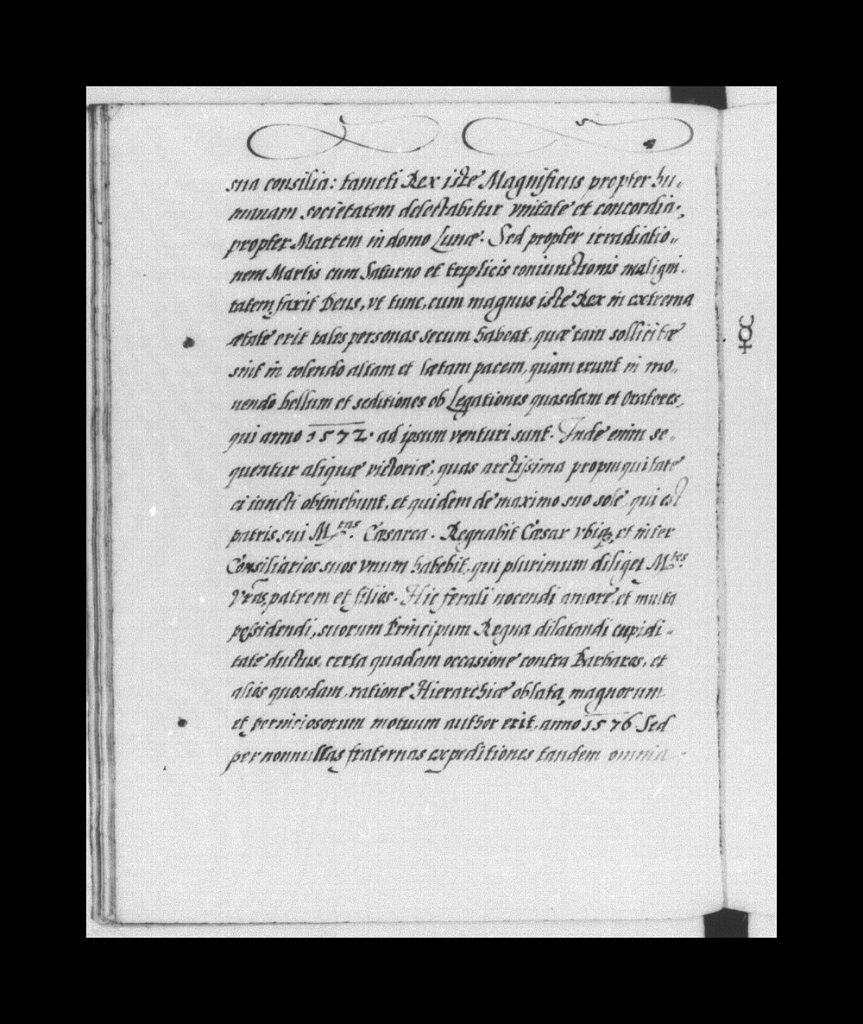 sua consilia: tametsi Rex iste Magnificus propter hu„
manam societatem delectabitur vnitate et concordia,
propter Martem in domo Lunæ. Sed propter irradiatio„
nem Martis cum Saturno et triplicis coniunctionis maligni„
tatem, faxit Deus, vt tunc, cum magnus iste Rex in extrema
ætate erit tales personas secum habeat, quæ tam sollicitæ
sint in colendo altam et lætam pacem, quàm erunt in mo„
uendo bellum et seditiones ob Legationes quasdam et Oratores,
qui anno 1572. ad ipsum venturi sunt. Inde enim se„
quentur aliquæ victoriæ, quas arctissima propinquitate
ei iuncti obtinebunt, et quidem de maximo suo sole, qui est
patris sui M.tas Cæsarea. Regnabit Cæsar vbiq, et inter
Consiliarios suos vnum habebit, qui plurimum diliget M.tes
Vras, patrem et filios. Hic ferali nocendi amore, et multa
possidendi, suorum Principum Regna dilatandi cupidi„
tate ductus, certa quadam occasione contra Barbaros, et
alios quosdam, ratione Hierarchiæ oblata, magnorum
et perniciosorum motuum author erit, anno 1576 Sed
per nonnullas fraternas expeditiones tandem omnia
☿